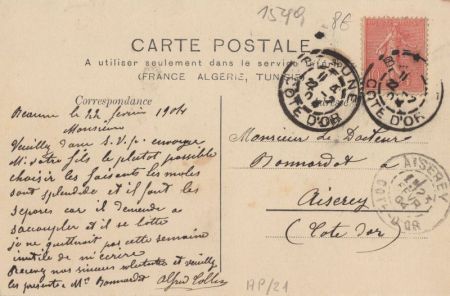 1599 8€
CARTE POSTALE
A utiliser seulement dans le service
(FRANCE ALGERIE, TUNISIE
Correspondance
Beaune le 22 fevrier 1904
Monsieur
Veuillez dans S.V.p. envoyer
Mr votre fils le plutot possible
choisir les faisants les moles
sont splendide et il font les
separes car il demende a
saccoupler et il se batte
je ne quitterait pas cette semaine
inutile de m'écrire
Recevez nos sincères salutations et veuillez
les presenter a Me Bonnardot Alfred
Monsieur le Docteur
Bonnardot a
Aiserey
(Cote d'or)
BEAUNE
COTE D'OR
COTE D'OR
AISEREY
COTE D'OR
AP/21